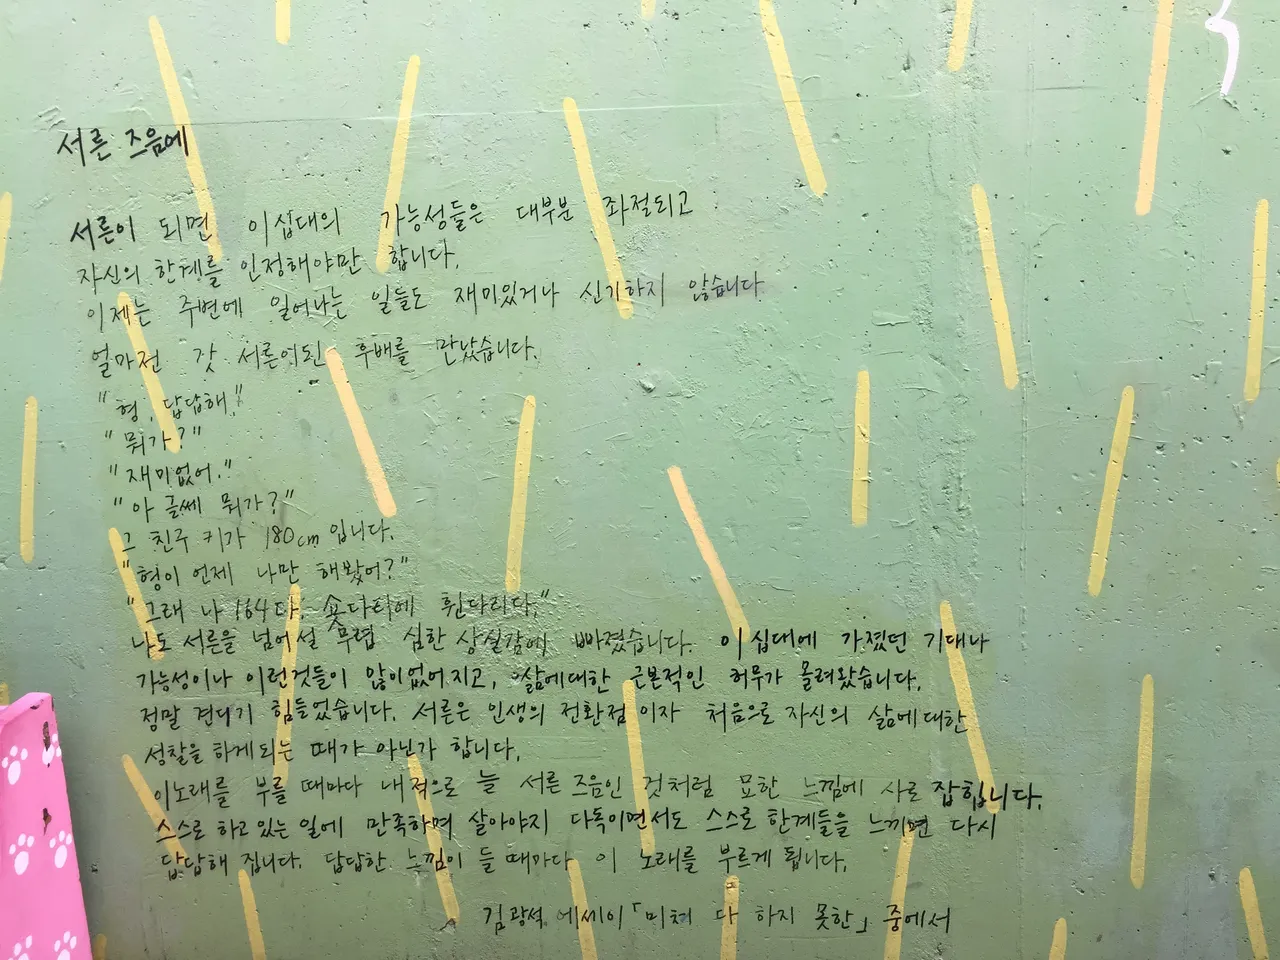 서른 즈음에
서른이 되면 이십대의 가능성들은 대부분 좌절되고
자신의 한계를 인정해야만 합니다.
이제는 주변에 일어나는 일들도 재미있거나 신기하지 않습니다
얼마전 갓 서른이된 후배를 만났습니다.
"형, 답답해."
"뭐가?"
"재미없어."
"아 글쎄 뭐가?"
그 친구 키가 180cm 입니다.
"형이 언제 나만 해봤어?"
"그래 나 164다. 숏다리에 휜다리다."
나도 서른을 넘어설 무렵 심한 상실감에 빠졌습니다. 이십대에 가졌던 기대나
가능성이나 이런것들이 많이없어지고, 삶에대한 근본적인 허무가 몰려왔습니다.
정말 견디기 힘들었습니다. 서른은 인생의 전환점이자 처음으로 자신의 삶에대한
성찰을 하게되는 때가 아닌가 합니다.
이노래를 부를 때마다 내적으로 늘 서른 즈음인 것처럼 묘한 느낌에 사로 잡힙니다.
스스로 하고있는 일에 만족하며 살아야지 다독이면서도 스스로 한계들을 느끼면 다시
답답해 집니다. 답답한 느낌이 들 때마다 이 노래를 부르게 됩니다.
김광석 에세이「미처 다 하지 못한」중에서